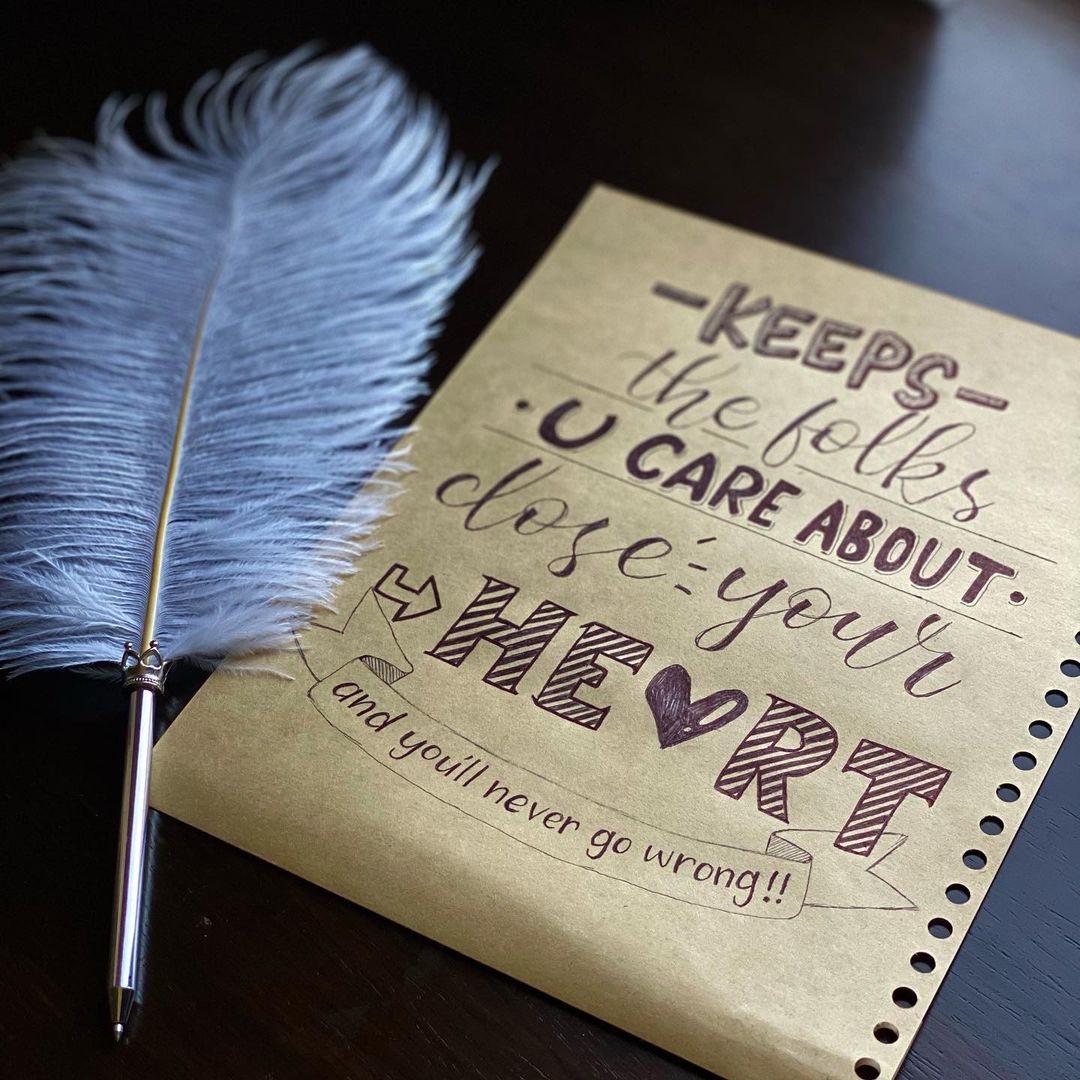 -KEEPS-
the folks
· U CARE ABOUT ·
close your
HE♥RT
and you'll never go wrong!!